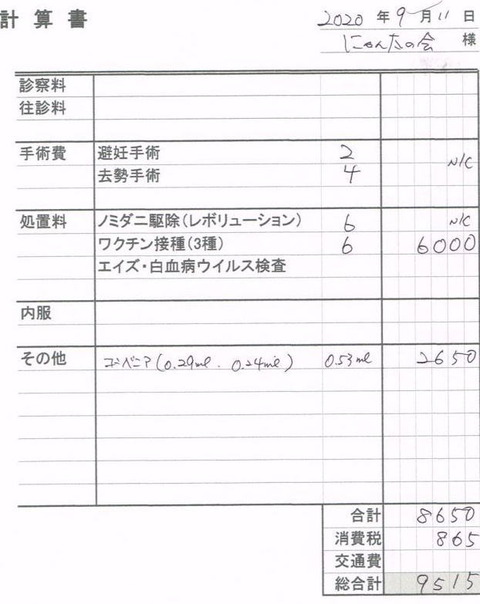 計算書
2020 年 9 月 11 日
にゃんたの会 様
診察料
往診料
手術費 避妊手術 2
去勢手術 4 N/C
処置料 ノミダニ駆除(レボリューション) 6 N/C
ワクチン接種(3種) 6 6000
エイズ・白血病ウイルス検査
内服
その他 コンベニア(0.29ml . 0.24ml) 0.53ml 2650
合計 8650
消費税 865
交通費
総合計 9515